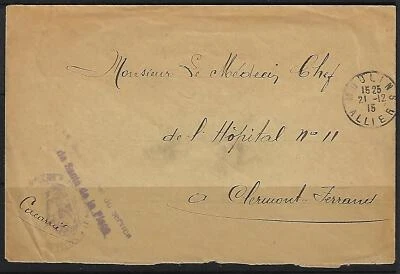 Monsieur Le Médecin Chef
MOULINS
15 25
21 -12
15
ALLIER
de l'Hôpital No 11
à Clermont-Ferrand
du Service
de Santé de la Place